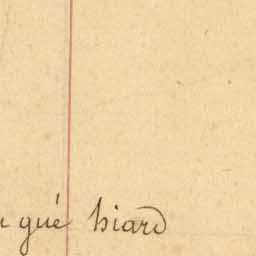 gué hiard